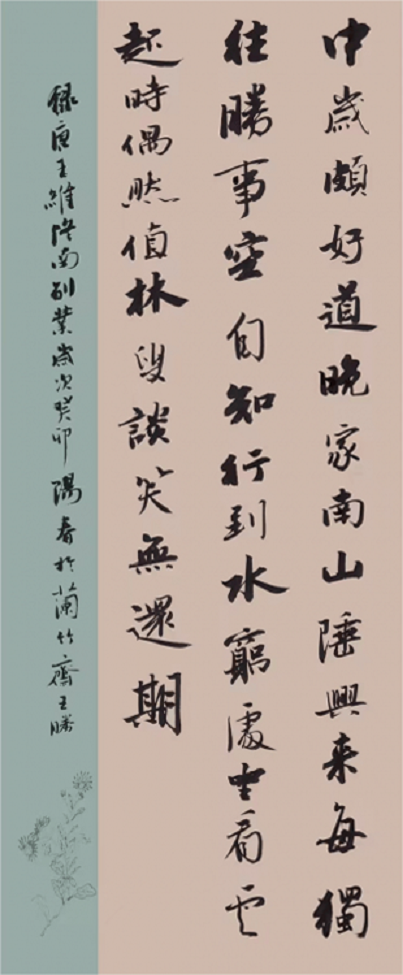 中歲頗好道晚家南山陲興来每獨
往勝事空自知行到水窮處坐看云
起時偶然值林叟談笑無還期
錄唐王維終南別業歲次癸卯陽春於蘭竹齋王勝